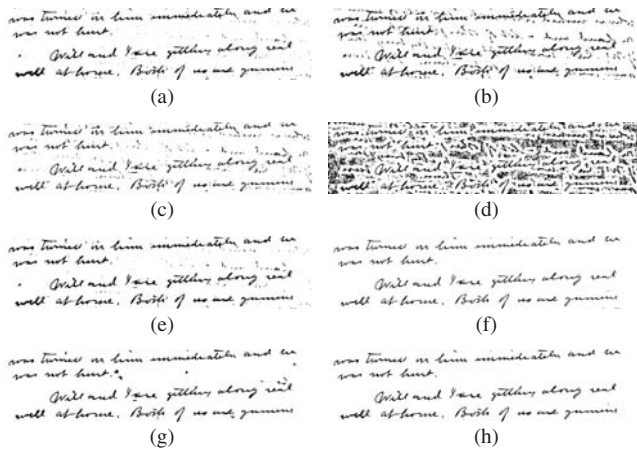 was turned on him immediately and
was not hurt.
Will and I are getting along real
well at home. Both of us are
(a)
was turned on him immediately and
was not hurt.
Will and I are getting along real
well at home. Both of us are
(b)
was turned on him immediately and
was not hurt.
Will and I are getting along real
well at home. Both of us are
(c)
was turned on him immediately and
was not hurt.
Will and
well at home. Both of us are
(d)
was turned on him immediately and
was not hurt.
Will and I are getting along real
well at home. Both of us are
(e)
was turned on him immediately and
was not hurt.
Will and I are getting along real
well at home. Both of us are
(f)
was turned on him immediately and
was not hurt.
Will and I are getting along real
well at home. Both of us are
(g)
was turned on him immediately and
was not hurt.
Will and I are getting along real
well at home. Both of us are
(h)